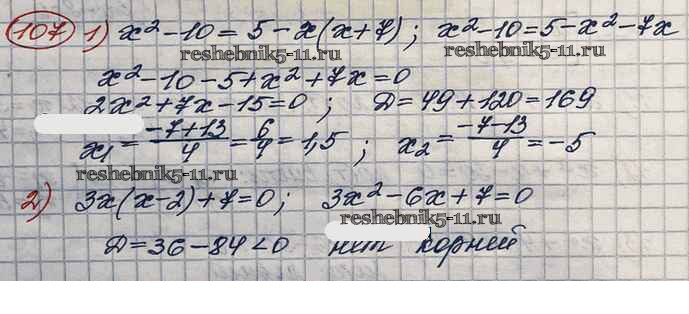 107 1) x² - 10 = 5 - x(x+7); x² - 10 = 5 - x² - 7x
reshebnik5-11.ru reshebnik5-11.ru
x² - 10 - 5 + x² + 7x = 0
2x² + 7x - 15 = 0; D = 49 + 120 = 169
x₁ = (-7+13)/4 = 6/4 = 1,5; x₂ = (-7-13)/4 = -5
reshebnik5-11.ru
2) 3x(x-2) + 7 = 0; 3x² - 6x + 7 = 0
reshebnik5-11.ru
D = 36 - 84 < 0 нет корней